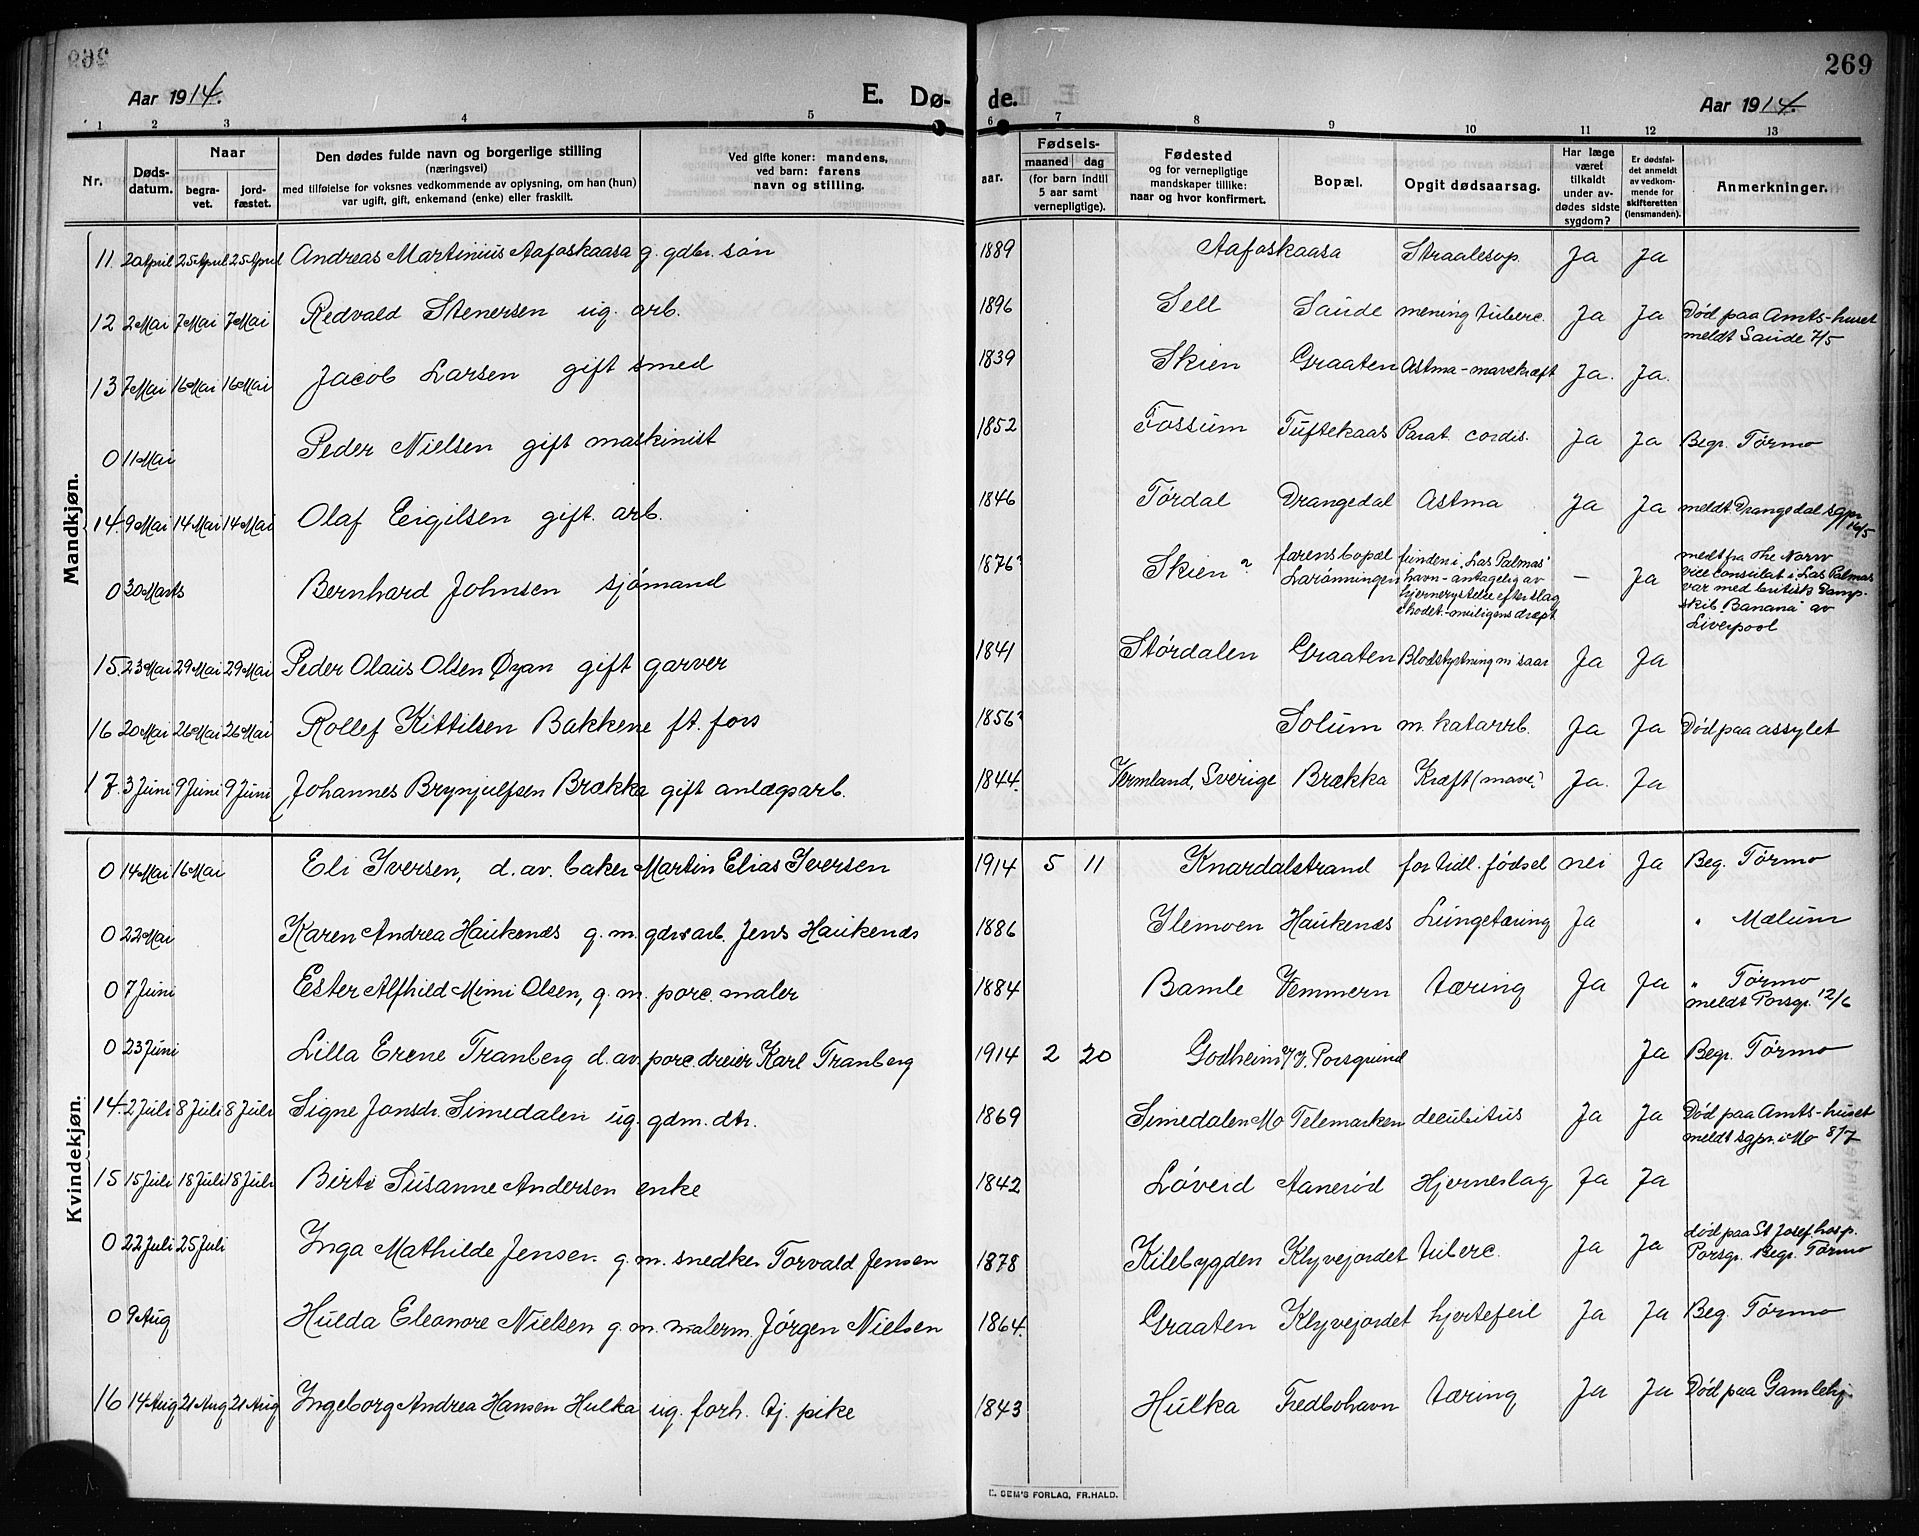 269
Aar 1914. E. Dø- de. Aar 1914.
1 2 3 4 5 6 7 8 9 10 11 12 13
Nr. Døds-datum. Naar begra-vet. jord-fæstet. Den dødes fulde navn og borgerlige stilling (næringsvei) med tilføielse for voksnes vedkommende av oplysning, om han (hun) var ugift, gift, enkemand (enke) eller fraskilt. Ved gifte koner: mandens, ved barn: farens navn og stilling. aar. Fødsels- maaned dag (for barn indtil 5 aar samt vernepligtige). Fødested og for vernepligtige mandskaper tillike: naar og hvor konfirmert. Bopæl. Opgit dødsaarsag. Har læge været tilkaldt under av-dødes sidste sygdom? Er dødsfal-det anmeldt av vedkom-mende for skifteretten (lensmanden). Anmerkninger.
Mandkjøn.
11 20 April 25 April 25 April Andreas Martinius Aafoskaasa g. gdbr. søn 1889 Aafoskaasa Straalesop. Ja Ja
12 2 Mai 7 Mai 7 Mai Redvald Stenersen ug. arb. 1896 Sell Saude mening tuberc. Ja Ja Død paa Amts-huset
meldt Saude 7/5
13 7 Mai 16 Mai 16 Mai Jacob Larsen gift smed 1839 Skien Graaten Astma - mavekræft Ja. Ja.
0 11 Mai Peder Nielsen gift maskinist 1852 Fossum Tuftekaas Parat. cordis. Ja Ja Begr. Tørmo
14. 9 Mai 14 Mai 14 Mai Olaf Eigilsen gift. arb. 1846 Tørdal Drangedal Astma Ja Ja meldt Drangedal sgpr
16/5
0 30 Marts Bernhard Johnsen sjømand 1876? Skien? farens bopæl funden i "Las Palmas" — Ja medt fra the Norw
Larønningen havn - antagelig av vice consulat i Las Palmas
hjernerystelse efter slag var med britisk Damp-
i hodet - muligens dræpt skib "Banana" av
Liverpool
15. 23 Mai 29 Mai 29 Mai Peder Olaus Olsen Øyan gift garver 1841 Størdalen Graaten Blodstyrtning m saar Ja Ja
16 20 Mai 26 Mai 26 Mai Rollef Kittilsen Bakkene ft. fors 1856? Solum m. katarrb. Ja Ja Død paa assylet
17. 3 Juni 9 Juni 9 Juni Johannes Brynjulfsen Brækka gift anlægsarb. 1844. Vermland, Sverige Brækka Kræft (mave? Ja. Ja
Kvindekjøn.
0 14 Mai 16 Mai Eli Iversen, d. av. baker Martin Elias Iversen 1914 5 11 Knardalstrand for tidl. fødsel nei Ja Beg. Tørmo
0 22 Mai Karen Andrea Haukenæs g. m. gdrs arb. Jens Haukenæs 1886 Ilemoen Haukenæs Lungetæring Ja " Mælum
0 7 Juni Ester Alfhild Mimi Olsen, g. m. porc. maler 1884 Bamle Vemmern tæring Ja Ja " Tørmo
meldt Porsgr. 12/6
0 23 Juni Lilla Erene Tranberg d. av. porc. dreier Karl Tranberg 1914 2 20 Godheim V. Porsgrund Ja Begr. Tørmo
14. 2 Juli 8 Juli 8 Juli Signe Jonsdr. Simedalen ug. gdm. dtr. 1869 Simedalen Mo Telemarken decubitus Ja Ja Død paa Amts-huset
meldt sgpr. i Mo 8/7
15 15 Juli 18 Juli 18 Juli Birte Susanne Andersen enke 1842 Løveid Aanerød Hjerneslag Ja Ja
0 22 Juli 25 Juli Inga Mathilde Jensen. g. m. snedker Torvald Jensen 1878 Kilebygden Klyvejordet tuberc. Ja Ja død paa St Josef. hosp.
Porsgr. Begr. Tørmo
0 9 Aug Hulda Eleonore Nielsen g. m. malerm. Jørgen Nielsen 1864. Graaten Klyvejordet hjertefeil Ja Ja Beg. Tørmo
16 14 Aug 21 Aug 21 Aug Ingeborg Andrea Hansen Hulka ug. forh. tj. pike 1843 Hulka Fredbohavn tæring Ja Ja Død paa Gamlehj.
E. SEM'S FORLAG, FR.HALD.